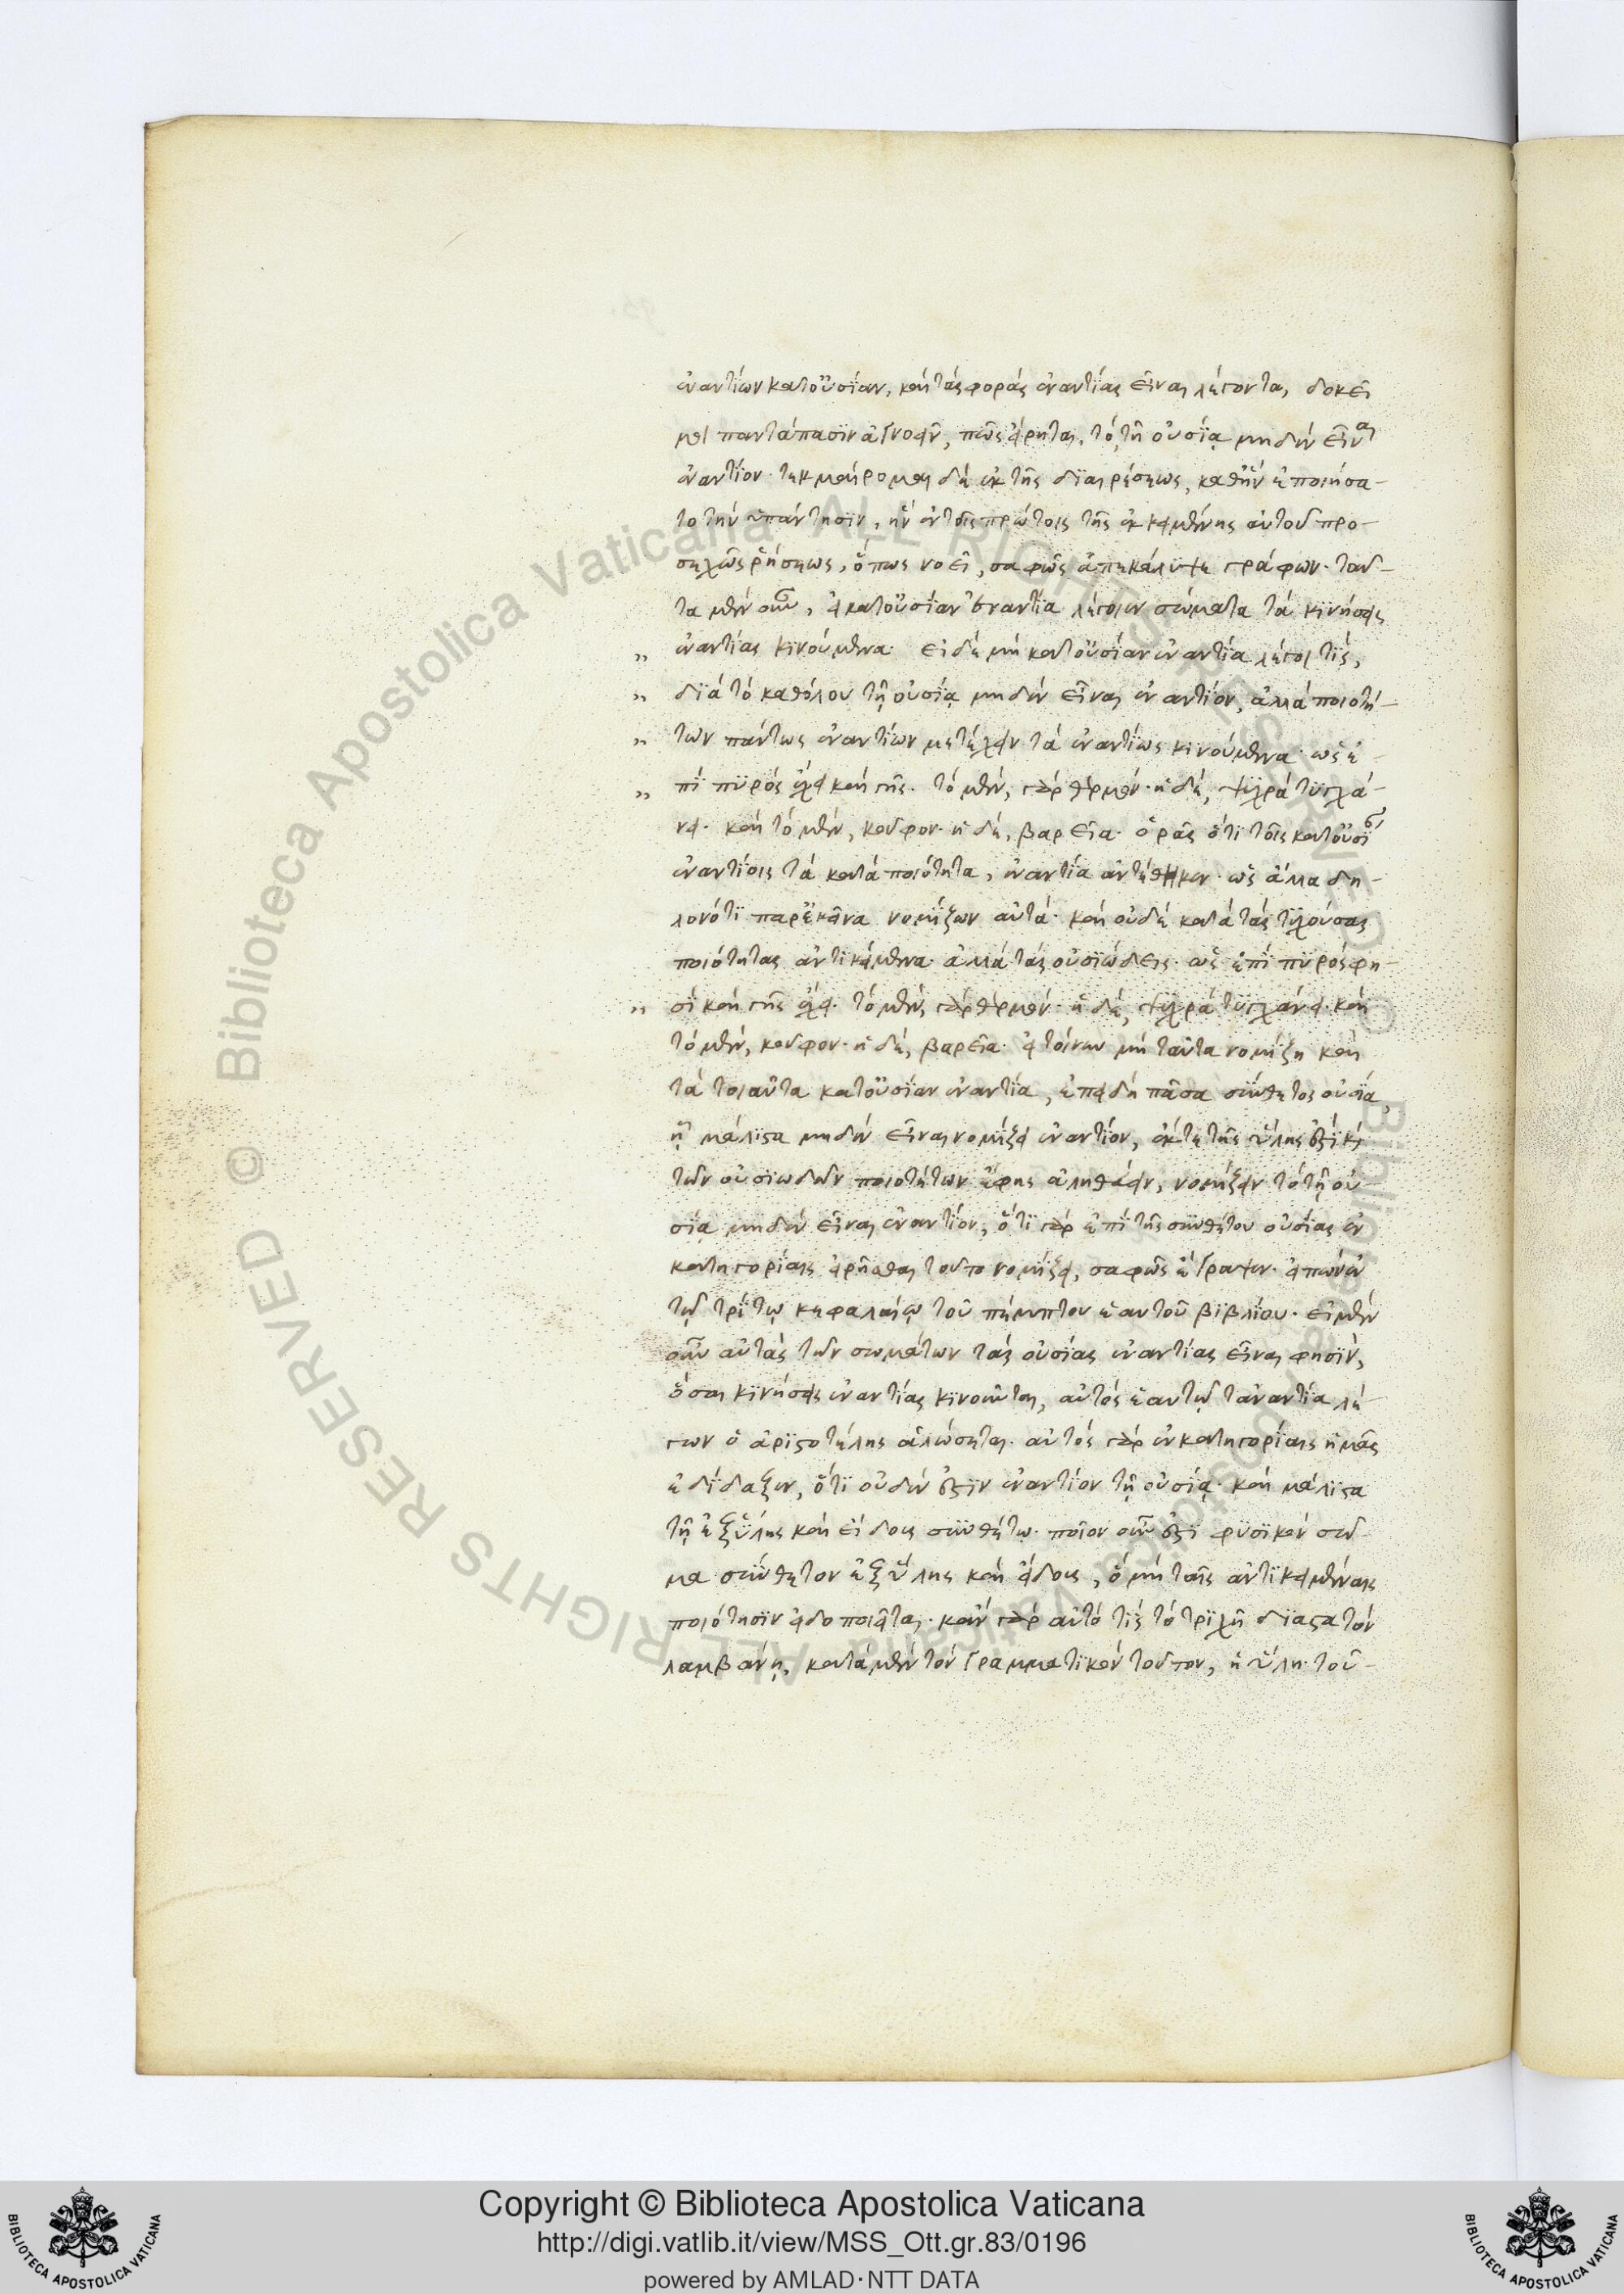 ἐναντίων κατ' οὐσίαν, καὶ τὰς φορὰς ἐναντίας εἶναι λέγοντα, δοκεῖ
μοι παντάπασιν ἀγνοεῖν, πῶς εἴρηται, τὸ τῇ οὐσίᾳ μηδὲν εἶναι
ἐναντίον. τεκμαίρομαι δὲ ἐκ τῆς διαιρέσεως, καθ' ἣν ἐποιήσα-
το τὴν ὑπάντησιν, ἣν ἐν τοῖς πρώτοις τῆς ἐκκειμένης αὐτοῦ προ-
σεχῶς ῥήσεως, ὅπως νοεῖ, σαφῶς ἀπεκάλυψε γράφων. ταῦ-
τα μὲν οὖν, εἰ κατ' οὐσίαν ἐναντία λέγοιεν σώματα τὰ κινήσεις
„ ἐναντίας κινούμενα. εἰ δὲ μὴ κατ' οὐσίαν ἐναντία λέγοι τίς,
„ διὰ τὸ καθόλου τῇ οὐσίᾳ μηδὲν εἶναι ἐναντίον, ἀλλὰ ποιοτή-
„ των πάντως ἐναντίων μετέχειν τὰ ἐναντίως κινούμενα. ὡς ἐ-
„ πὶ πυρὸς ἔχει καὶ γῆς. τὸ μὲν, γὰρ θερμόν. ἡ δὲ, ψυχρὰ τυγχά-
νει. καὶ τὸ μὲν, κοῦφον. ἡ δὲ, βαρεῖα. ὁρᾷς ὅτι τοῖς κατ' οὐσίαν
ἐναντίοις τὰ κατὰ ποιότητα, ἐναντία ἀντέθηκεν. ὡς ἄλλα δη-
λονότι παρ' ἐκεῖνα νομίζων αὐτά. καὶ οὐδὲ κατὰ τὰς τυχούσας
ποιότητας ἀντικείμενα. ἀλλὰ τὰς οὐσιώδεις. ὡς ἐπὶ πυρὸς φη-
„ σὶ καὶ γῆς ἔχει. τὸ μὲν, γὰρ θερμόν. ἡ δὲ, ψυχρὰ τυγχάνει. καὶ
τὸ μὲν, κοῦφον. ἡ δὲ, βαρεῖα. εἰ τοίνυν μὴ ταῦτα νομίζει καὶ
τὰ τοιαῦτα κατ' οὐσίαν ἐναντία, ἐπειδὴ πᾶσα σύνθετος οὐσία,
ᾗ μάλιστα μηδὲν εἶναι νομίζει ἐναντίον, ἐκ τε τῆς ὕλης ἐστὶ καὶ
τῶν οὐσιωδῶν ποιοτήτων ἔφης ἀληθεύειν, νομίζειν τὸ τῇ οὐ-
σίᾳ μηδὲν εἶναι ἐναντίον, ὅτι γὰρ ἐπὶ τῆς συνθέτου οὐσίας ἐν
κατηγορίαις εἰρῆσθαι τοῦτο νομίζει, σαφῶς ἔγραψεν. εἰπὼν ἐν
τῷ τρίτῳ κεφαλαίῳ τοῦ πέμπτου ἑαυτοῦ βιβλίου. εἰ μὲν
οὖν αὐτὰς τῶν σωμάτων τὰς οὐσίας ἐναντίας εἶναι φησὶν,
ὅσαι κινήσεις ἐναντίας κινοῦνται, αὐτὸς ἑαυτῷ τἀναντία λέ-
γων ὁ ἀριστοτέλης ἁλώσεται. αὐτὸς γὰρ ἐν κατηγορίαις ἡμᾶς
ἐδίδαξεν, ὅτι οὐδέν ἐστιν ἐναντίον τῇ οὐσίᾳ. καὶ μάλιστα
τῇ ἐξ ὕλης καὶ εἴδους συνθέτῳ. ποῖον οὖν ἐστὶ φυσικὸν σῶ-
μα σύνθετον ἐξ ὕλης καὶ εἴδους, ὃ μὴ ταῖς ἀντικειμέναις
ποιότησιν εἰδοποιεῖται. κἂν γὰρ αὐτό τις τὸ τριχῇ διαστατὸν
λαμβάνῃ, κατὰ μὲν τὸν Γραμματικὸν τοῦτον, ἡ ὕλη τοῦ-
Copyright © Biblioteca Apostolica Vaticana
http://digi.vatlib.it/view/MSS_Ott.gr.83/0196
powered by AMLAD·NTT DATA
BIBLIOTECA APOSTOLICA VATICANA
BIBLIOTECA APOSTOLICA VATICANA
© Biblioteca Apostolica Vaticana ALL RIGHTS RESERVED
© Biblioteca Apostolica Vaticana ALL RIGHTS RESERVED